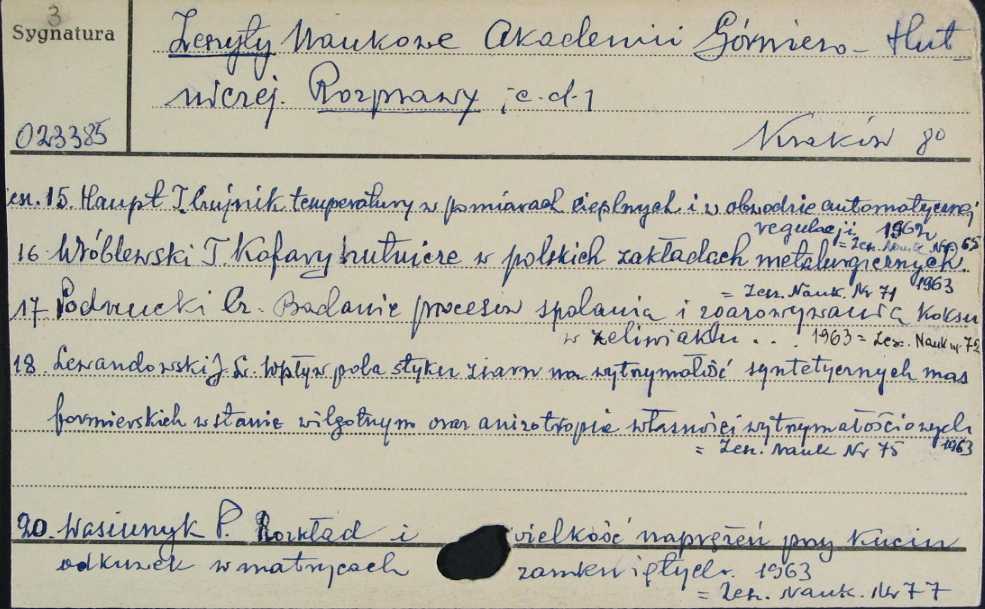 3
Sygnatura
Zeszyty Naukowe Akademii Górniczo-Hut
niczej. Rozprawy [c.d.]
023385
Kraków 8°
zesz. 15. Haupt T. Czujnik temperatury w pomiarach cieplnych i w obwodzie automatycznej
regulacji 1962
= Zesz. Nauk. Nr 65
16 Wróblewski T. Kafary hutnicze w polskich zakładach metalurgicznych.
1963
= Zesz. Nauk. Nr 71
17. Podrzucki Cz. Badanie procesów spalania i zgazowywania koksu
w żeliwiaku... 1963 = Zesz. Nauk nr 72
18. Lewandowski J. L. Wpływ pola styku ziarn na wytrzymałość syntetycznych mas
formierskich w stanie wilgotnym oraz anizotropia własności wytrzymałościowych
1963
= Zesz. Nauk Nr 75
20. Wasiunyk P. Rozkład i wielkość naprężeń przy kuciu
odkuwek w matrycach zamkniętych. 1963
= Zesz. Nauk. Nr 77